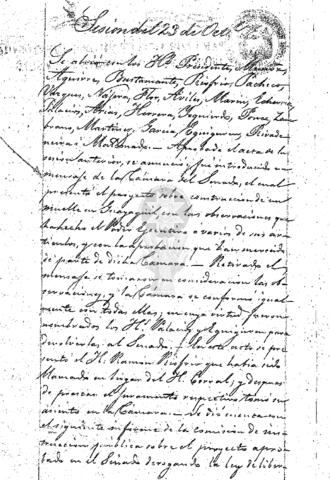 Sesion del 23 de Oct.e
Se abrió con los HH. Presidente,
Aguirre, Bustamante, Riofrio, Pacheco,
Vasquez, Najera, Flor, Aviles, Marin, Echeverria
Palacios, Arias, Herrera, Izquierdo, Torre, Zam
brano, Martinez, García, Eguiguren, Rivade
neira i Maldonado. — Aprobada el acta de la
sesion anterior, se anunció i fué introducido un
mensaje de la Cámara del Senado, el cual
presentó el proyecto sobre contruccion de un
muelle en Guayaquil, con las observaciones que
ha hecho el Poder Ejecutivo a varios de sus ar
tículos, y con la aprobacion que han merecido
de parte de dicha Cámara. — Retirado el
mensaje se tomaron en consideracion las ob
servaciones, y la Cámara se conformó igual
mente con todas ellas, en cuya virtud fueron
nombrados los HH. Palacios y Eguiguren para
devolverlas al Senado. — En este acto se pre
sentó el H. Ramon Riofrio que había sido
llamado en lugar del H. Corral, y despues
de prestar el juramento respectivo tomó su
asiento en la Cámara. — Se dió cuenta con
el siguiente informe de la comision de ins
truccion pública sobre el proyecto apro
bado en el Senado derogando la ley de liber